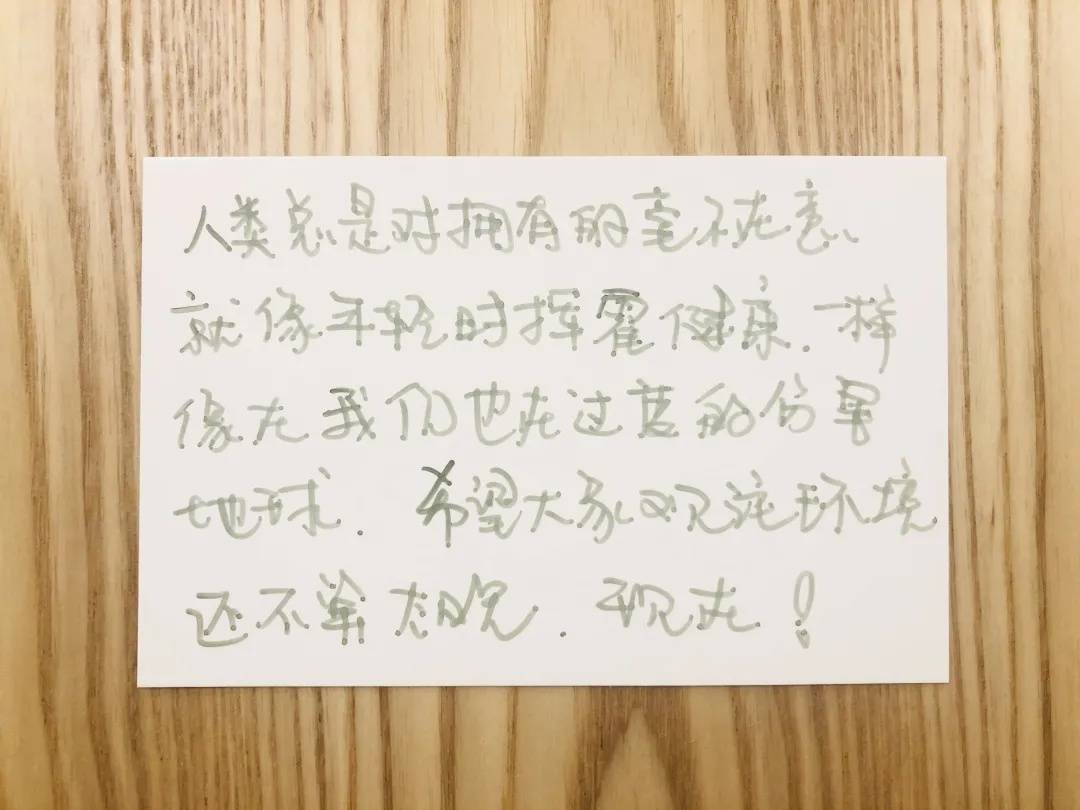 人类总是对拥有的毫不在意、
就像年轻时挥霍健康.一样
像在我们也在过度的伤害
地球. 希望大家观注环境
还不算太晚. 现在!